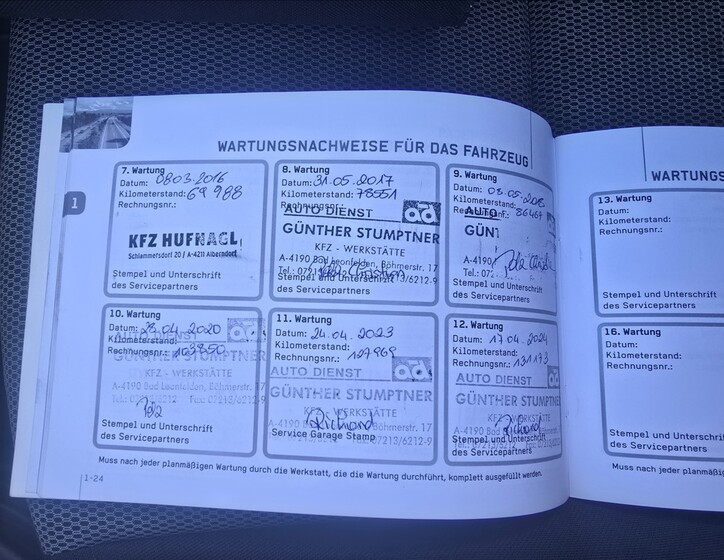 WARTUNGSNACHWEISE FÜR DAS FAHRZEUG
1
7. Wartung
Datum: 08.03.2016
Kilometerstand: 69 988
Rechnungsnr.:
KFZ HUFNAGL
Schlammersdorf 20 / A-4211 Alberndorf
Stempel und Unterschrift
des Servicepartners
8. Wartung
Datum: 31.05.2017
Kilometerstand: 78551
Rechnungsnr.:
AUTO DIENST ad
GÜNTHER STUMPTNER
KFZ - WERKSTÄTTE
A-4190 Bad Leonfelden, Böhmerstr. 17
Stempel und Unterschrift
des Servicepartners
9. Wartung
Datum:
Kilometerstand:
Rechnungsnr.: 86467
AUTO
GÜN
A-4190
Tel.: 072
Stempel und Unterschrift
des Servicepartners
10. Wartung
Datum: 28.04.2020
Kilometerstand:
Rechnungsnr.: 103850
AUTO DIENST ad
GÜNTHER STUMPTNER
KFZ - WERKSTÄTTE
A-4190 Bad Leonfelden, Böhmerstr. 17
Stempel und Unterschrift
des Servicepartners
11. Wartung
Datum: 24.04.2023
Kilometerstand:
Rechnungsnr.: 127969
AUTO DIENST ad
GÜNTHER STUMPTNER
KFZ - WERKSTÄTTE
A-4190 Richard
Service Garage Stamp
12. Wartung
Datum: 17.04.2024
Kilometerstand:
Rechnungsnr.: 131173
AUTO DIENST
GÜNTHER STUMPTNER
KFZ - WERKSTÄTTE
A-4190 Bad Richard
Stempel und Unterschrift
des Servicepartners
Muss nach jeder planmäßigen Wartung durch die Werkstatt, die die Wartung durchführt, komplett ausgefüllt werden.
1-24
WARTUNGS
13. Wartung
Datum:
Kilometerstand:
Rechnungsnr.:
Stempel und Unterschrift
des Servicepartners
16. Wartung
Datum:
Kilometerstand:
Rechnungsnr.:
Stempel und Unterschrift
des Servicepartners
Muss nach jeder planmäßig